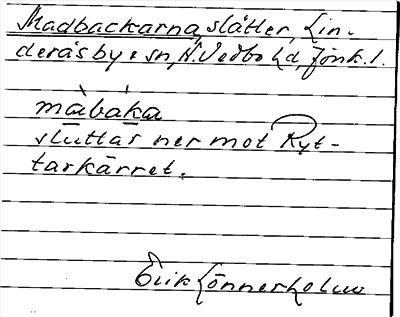 Madbackarna, slåtter, Lin-
deräs by o sn, N. Vedbo hd, Jönk. l.
màbáka
sluttas ner mot Ryt-
tarkärret.
Erik Lönnerholm